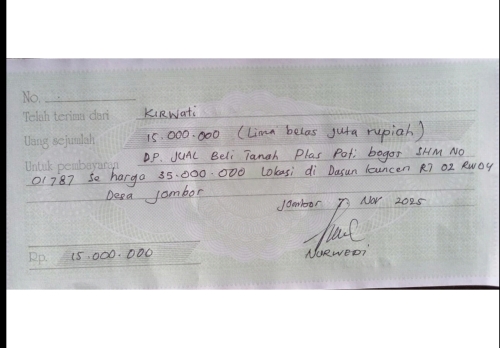 No.
Telah terima dari KIRWati
Uang sejumlah 15.000.000 (Lima belas juta rupiah)
Untuk pembayaran D.P. JUAL Beli Tanah Plas Poti bogor SHM NO
01787 Se harga 35.000.000 Lokasi di Dasun kuncen RT 02 RW04
Desa Jombor
Jombor 7, Nov 2025
Rp. 15.000.000
NURWEDI